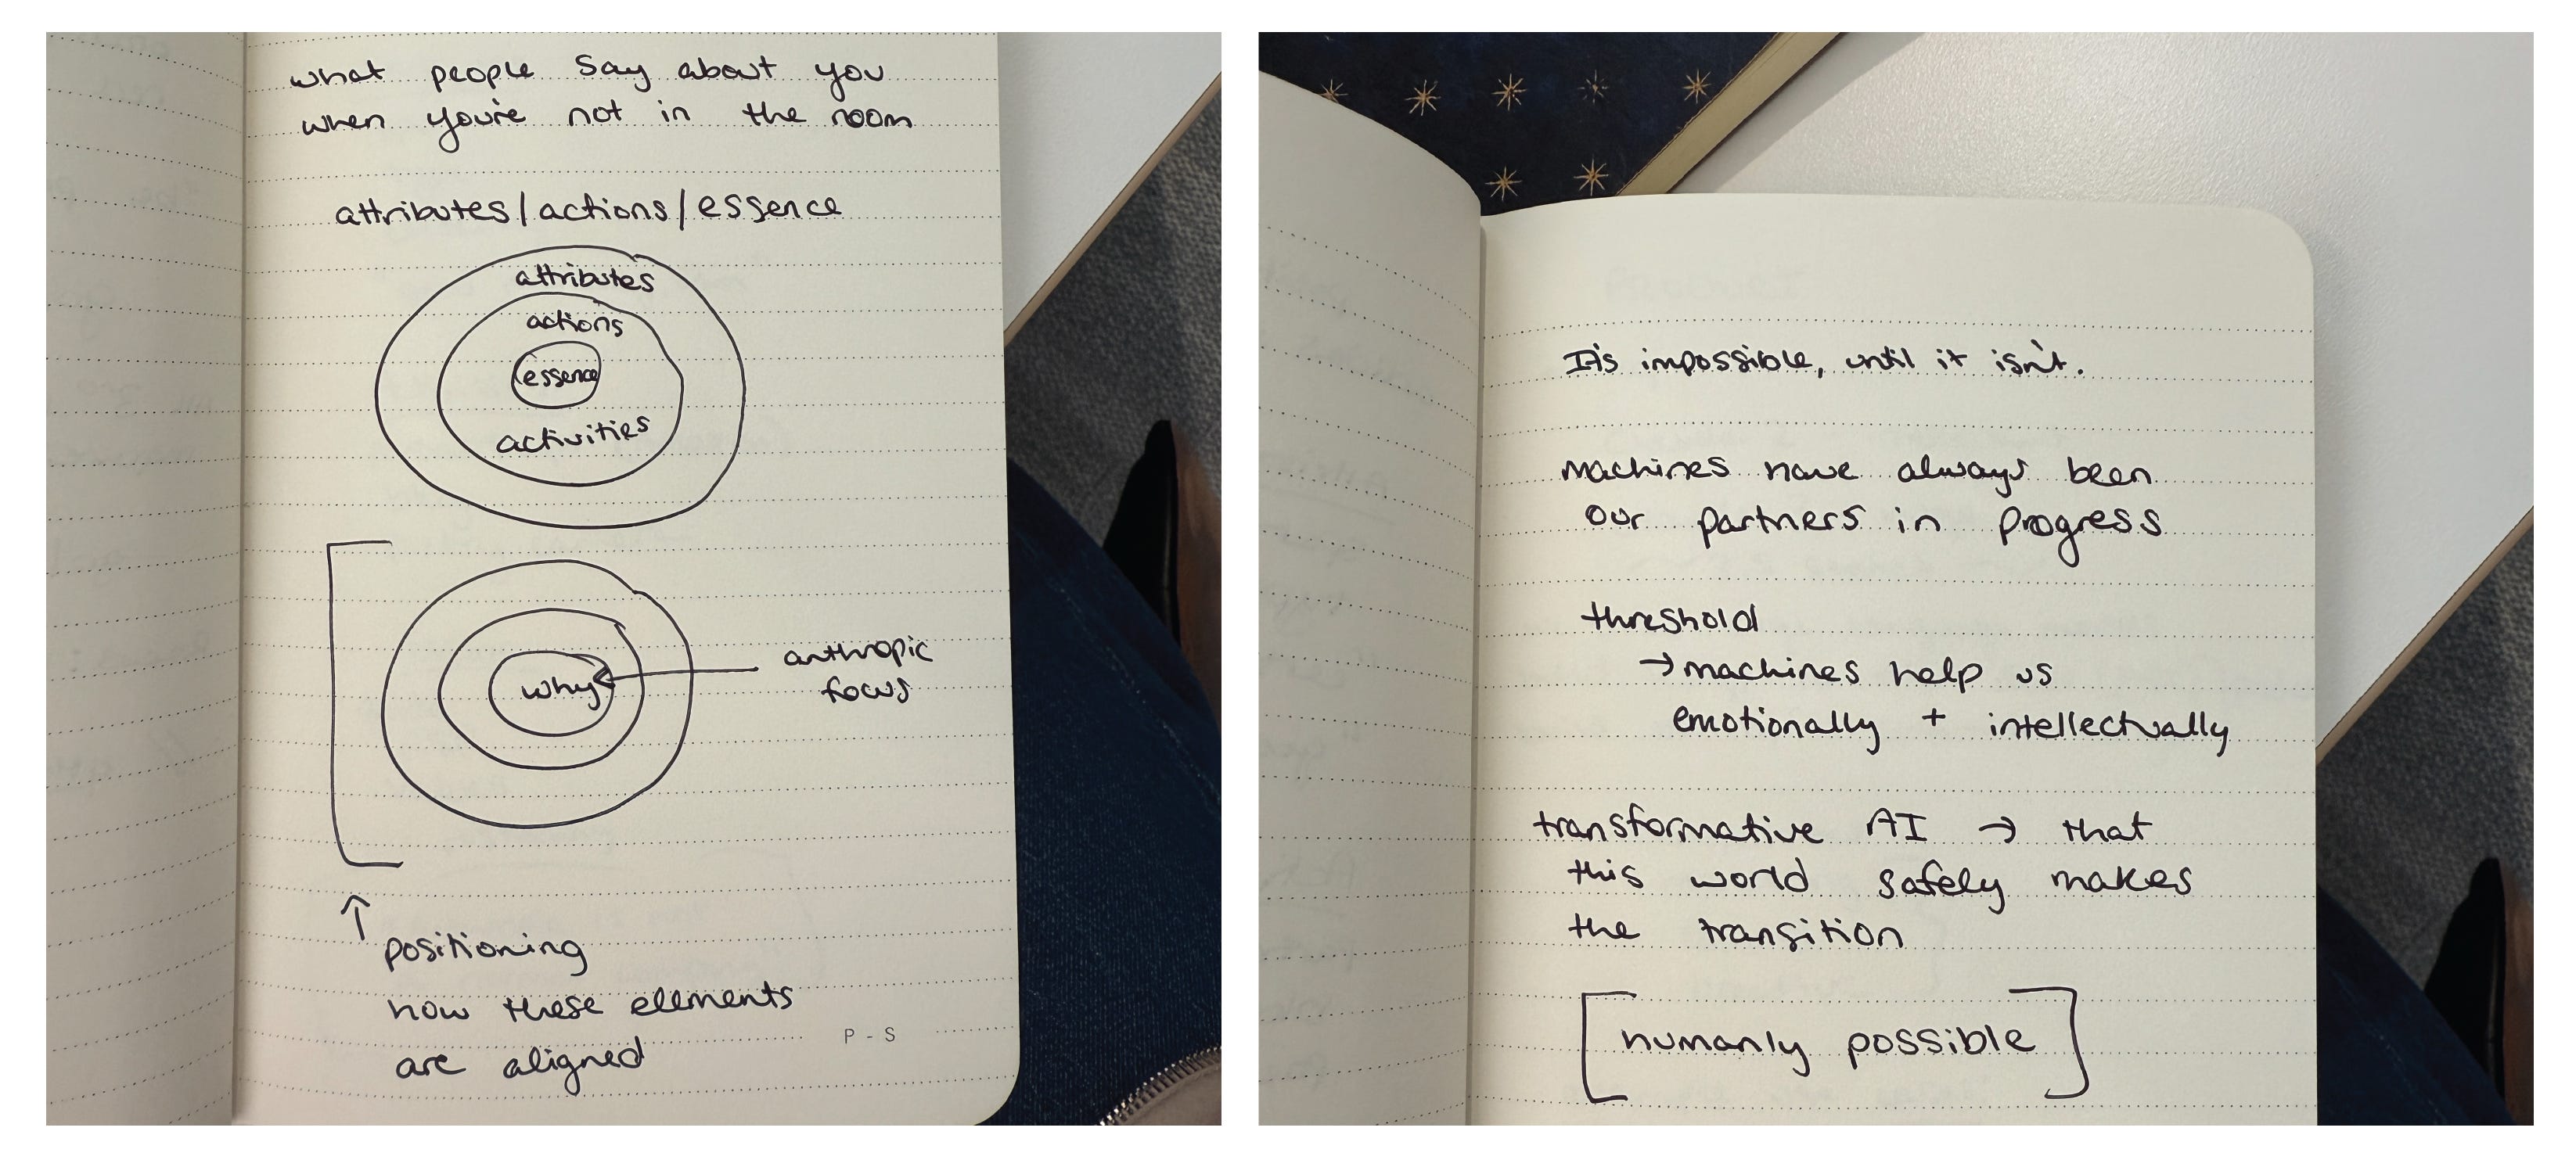 what people say about you
when you're not in the room
attributes/actions/essence
attributes
actions
essence
activities
why
anthropic
focus
positioning
how these elements
are aligned
P - S
It's impossible, until it isn't.
machines have always been
our partners in progress
threshold
→ machines help us
emotionally + intellectually
transformative AI → that
this world safely makes
the transition
[humanly possible]